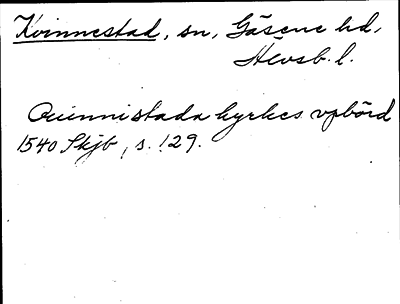 Kvinnestad, sn, Gäsene hd,
Älvsb. l.
Quinnistada kyrkes vpbörd
1540 Skjb, s. 129.